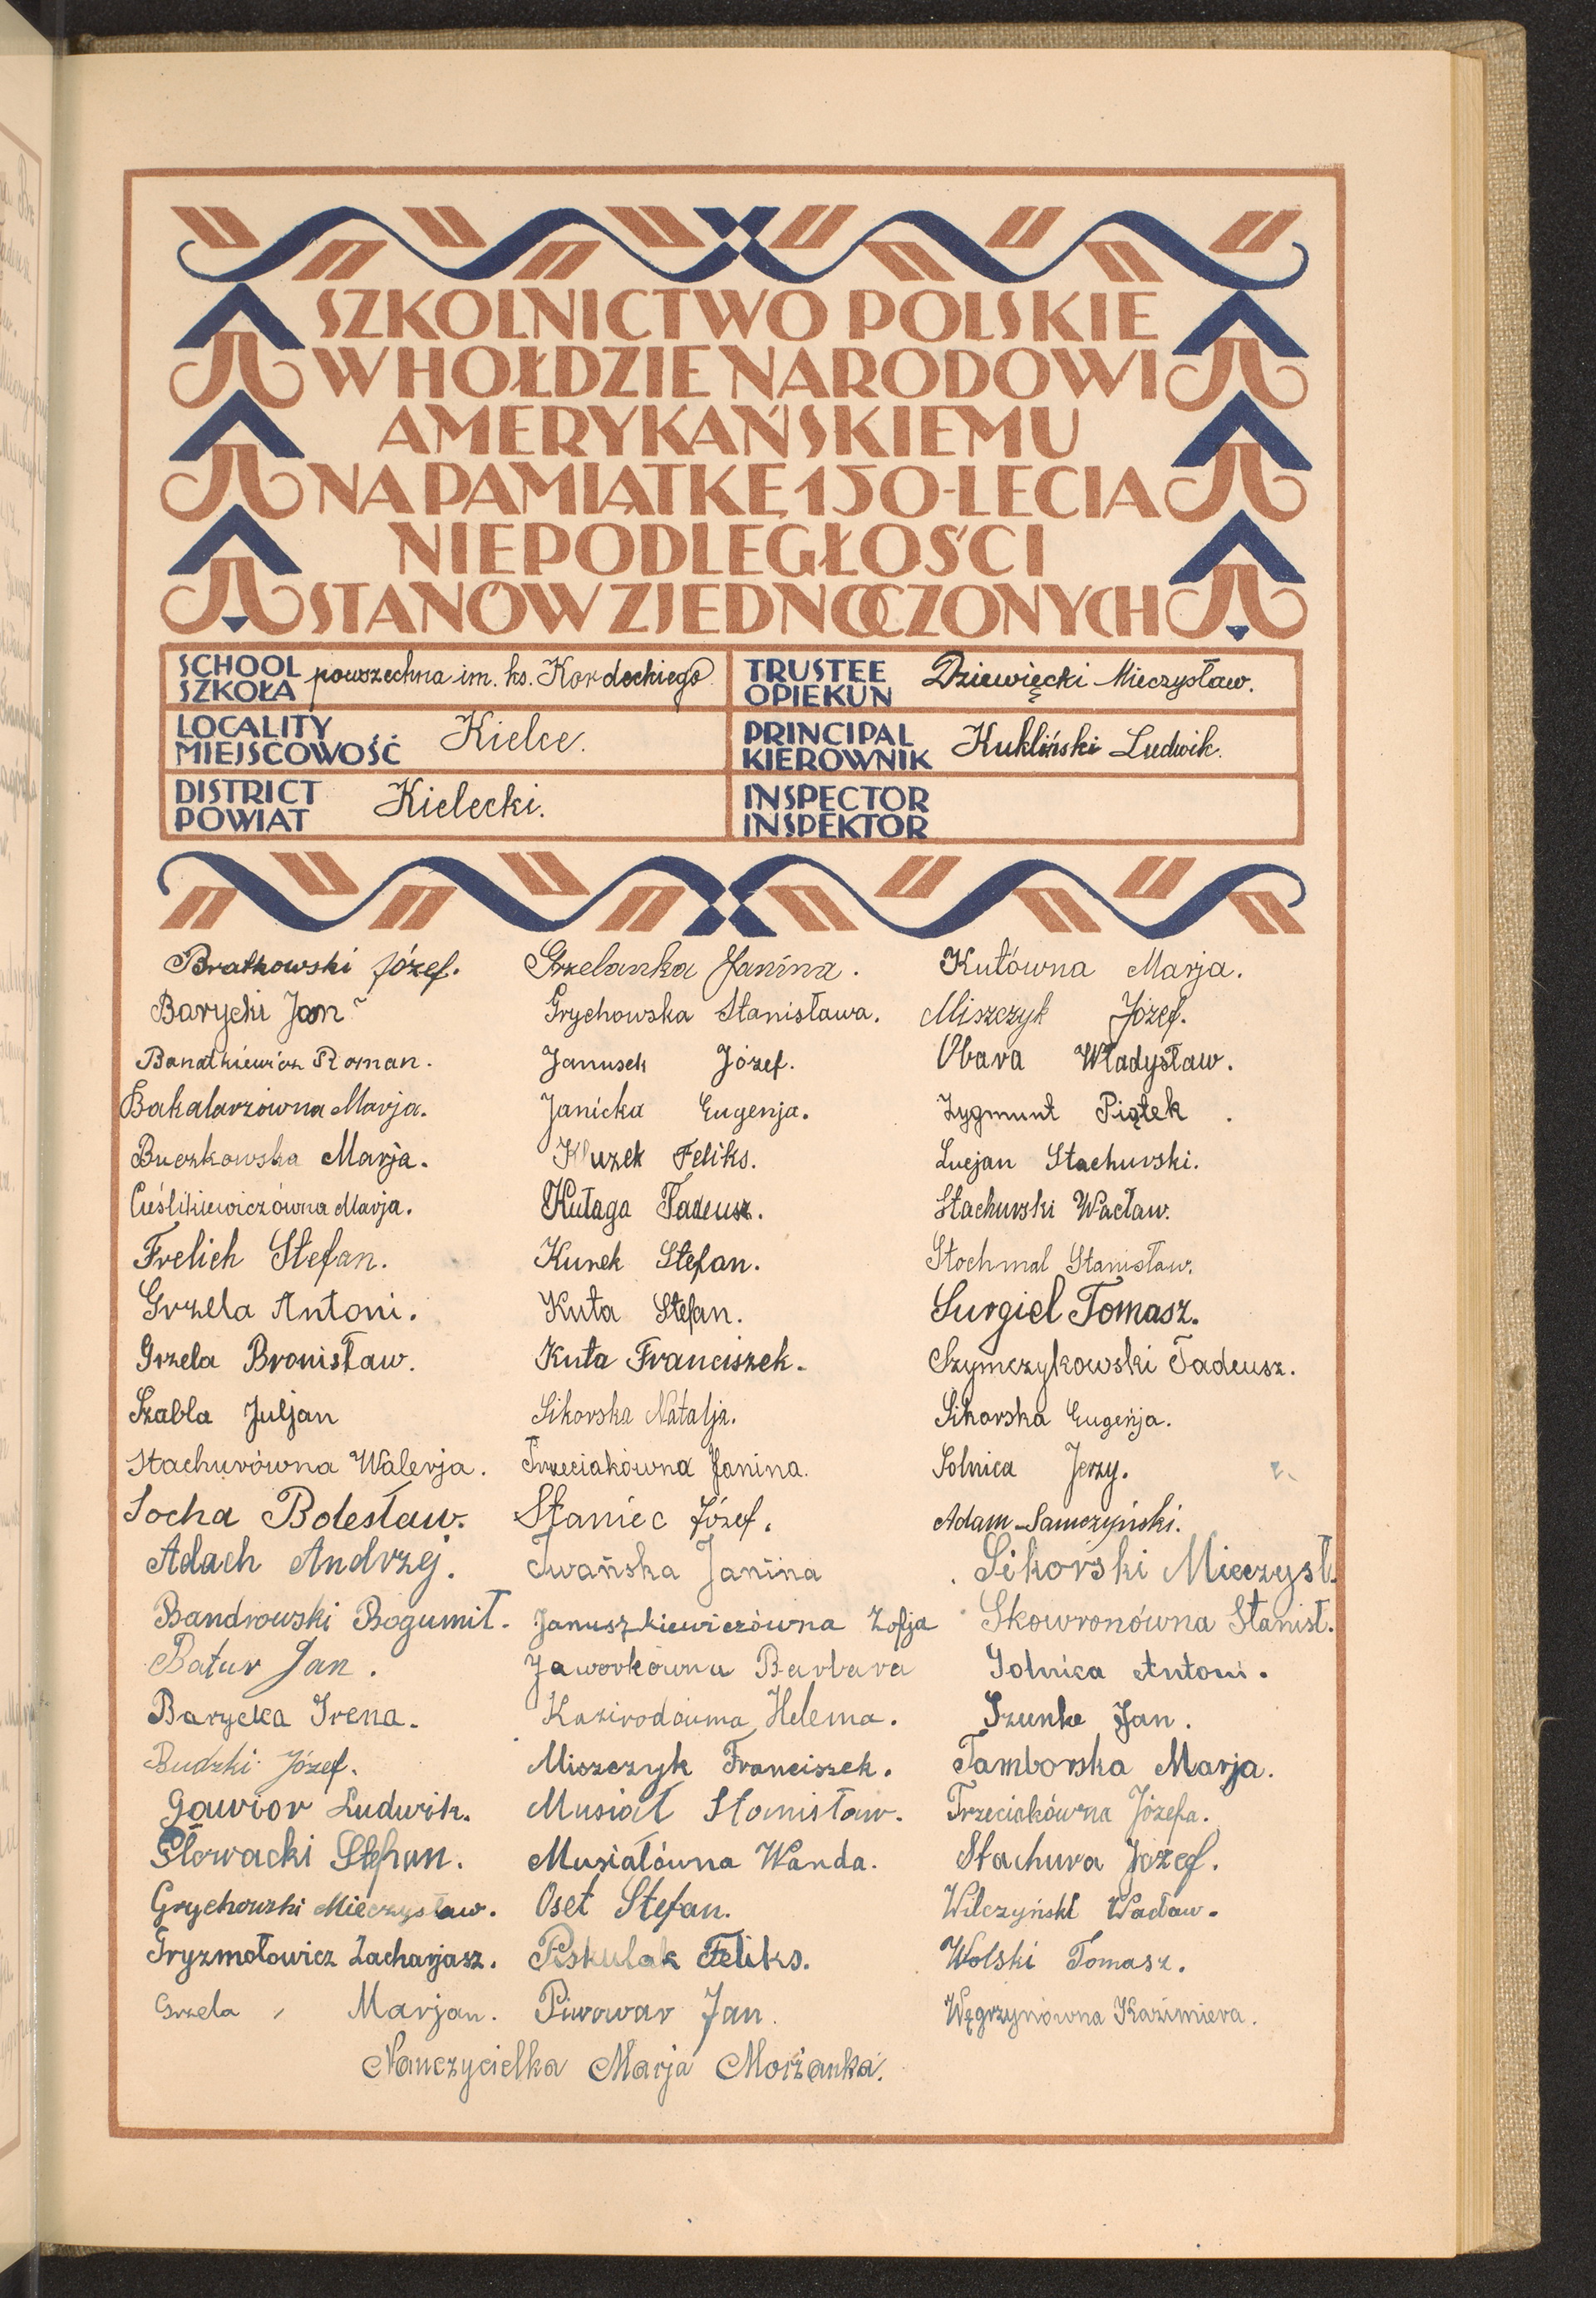 SZKOLNICTWO POLSKIE
W HOŁDZIE NARODOWI
AMERYKAŃSKIEMU
NA PAMIĄTKĘ 150-LECIA
NIEPODLEGŁOŚCI
STANÓW ZJEDNOCZONYCH
SCHOOL
SZKOŁA
powszechna im. ks. Kordeckiego
TRUSTEE
OPIEKUN
Dziewięcki Mieczysław.
LOCALITY
MIEJSCOWOŚĆ
Kielce.
PRINCIPAL
KIEROWNIK
Kukliński Ludwik.
DISTRICT
POWIAT
Kielecki.
INSPECTOR
INSPEKTOR
Bratkowski Józef.
Barycki Jan
Banatkiewicz Roman.
Bakalarzówna Marja.
Buczkowska Marja.
Cieślikiewiczówna Marja.
Frelich Stefan.
Grzela Antoni.
Grzela Bronisław.
Szabla Juljan
Stachurówna Walerja.
Socha Bolesław.
Adach Andrzej.
Bandrowski Bogumił.
Batur Jan.
Barycka Irena.
Budzki Józef.
Gawior Ludwik.
Głowacki Stefan.
Grychowski Mieczysław.
Gryzmołowicz Zacharjasz.
Grzela Marjan.
Grzelanka Janina.
Grychowska Stanisława.
Janusek Józef.
Janicka Eugenja.
Kluzek Feliks.
Kułaga Tadeusz.
Kurek Stefan.
Kuta Stefan.
Kuta Franciszek.
Sikorska Natalja.
Trzeciakówna Janina.
Staniec Józef.
Iwańska Janina
Januszkiewiczówna Zofja
Jaworkówna Barbara
Kazirodówna Helena.
Miszczyk Franciszek.
Musiał Stanisław.
Musiałówna Wanda.
Oset Stefan.
Piskulak Feliks.
Piwowar Jan.
Kutówna Marja.
Miszczyk Józef.
Obara Władysław.
Zygmunt Piątek.
Lucjan Stachurski.
Stachurski Wacław.
Stochmal Stanisław.
Surgiel Tomasz.
Szymczykowski Tadeusz.
Sikorska Eugenja.
Solnica Jerzy.
Adam Samczyński.
Sikorski Mieczysł.
Skowronówna Stanisł.
Solnica Antoni.
Szunke Jan.
Tamborska Marja.
Trzeciakówna Józefa.
Stachura Józef.
Wilczyński Wacław.
Wolski Tomasz.
Węgrzynówna Kazimiera.
Nauczycielka Marja Morżanka.